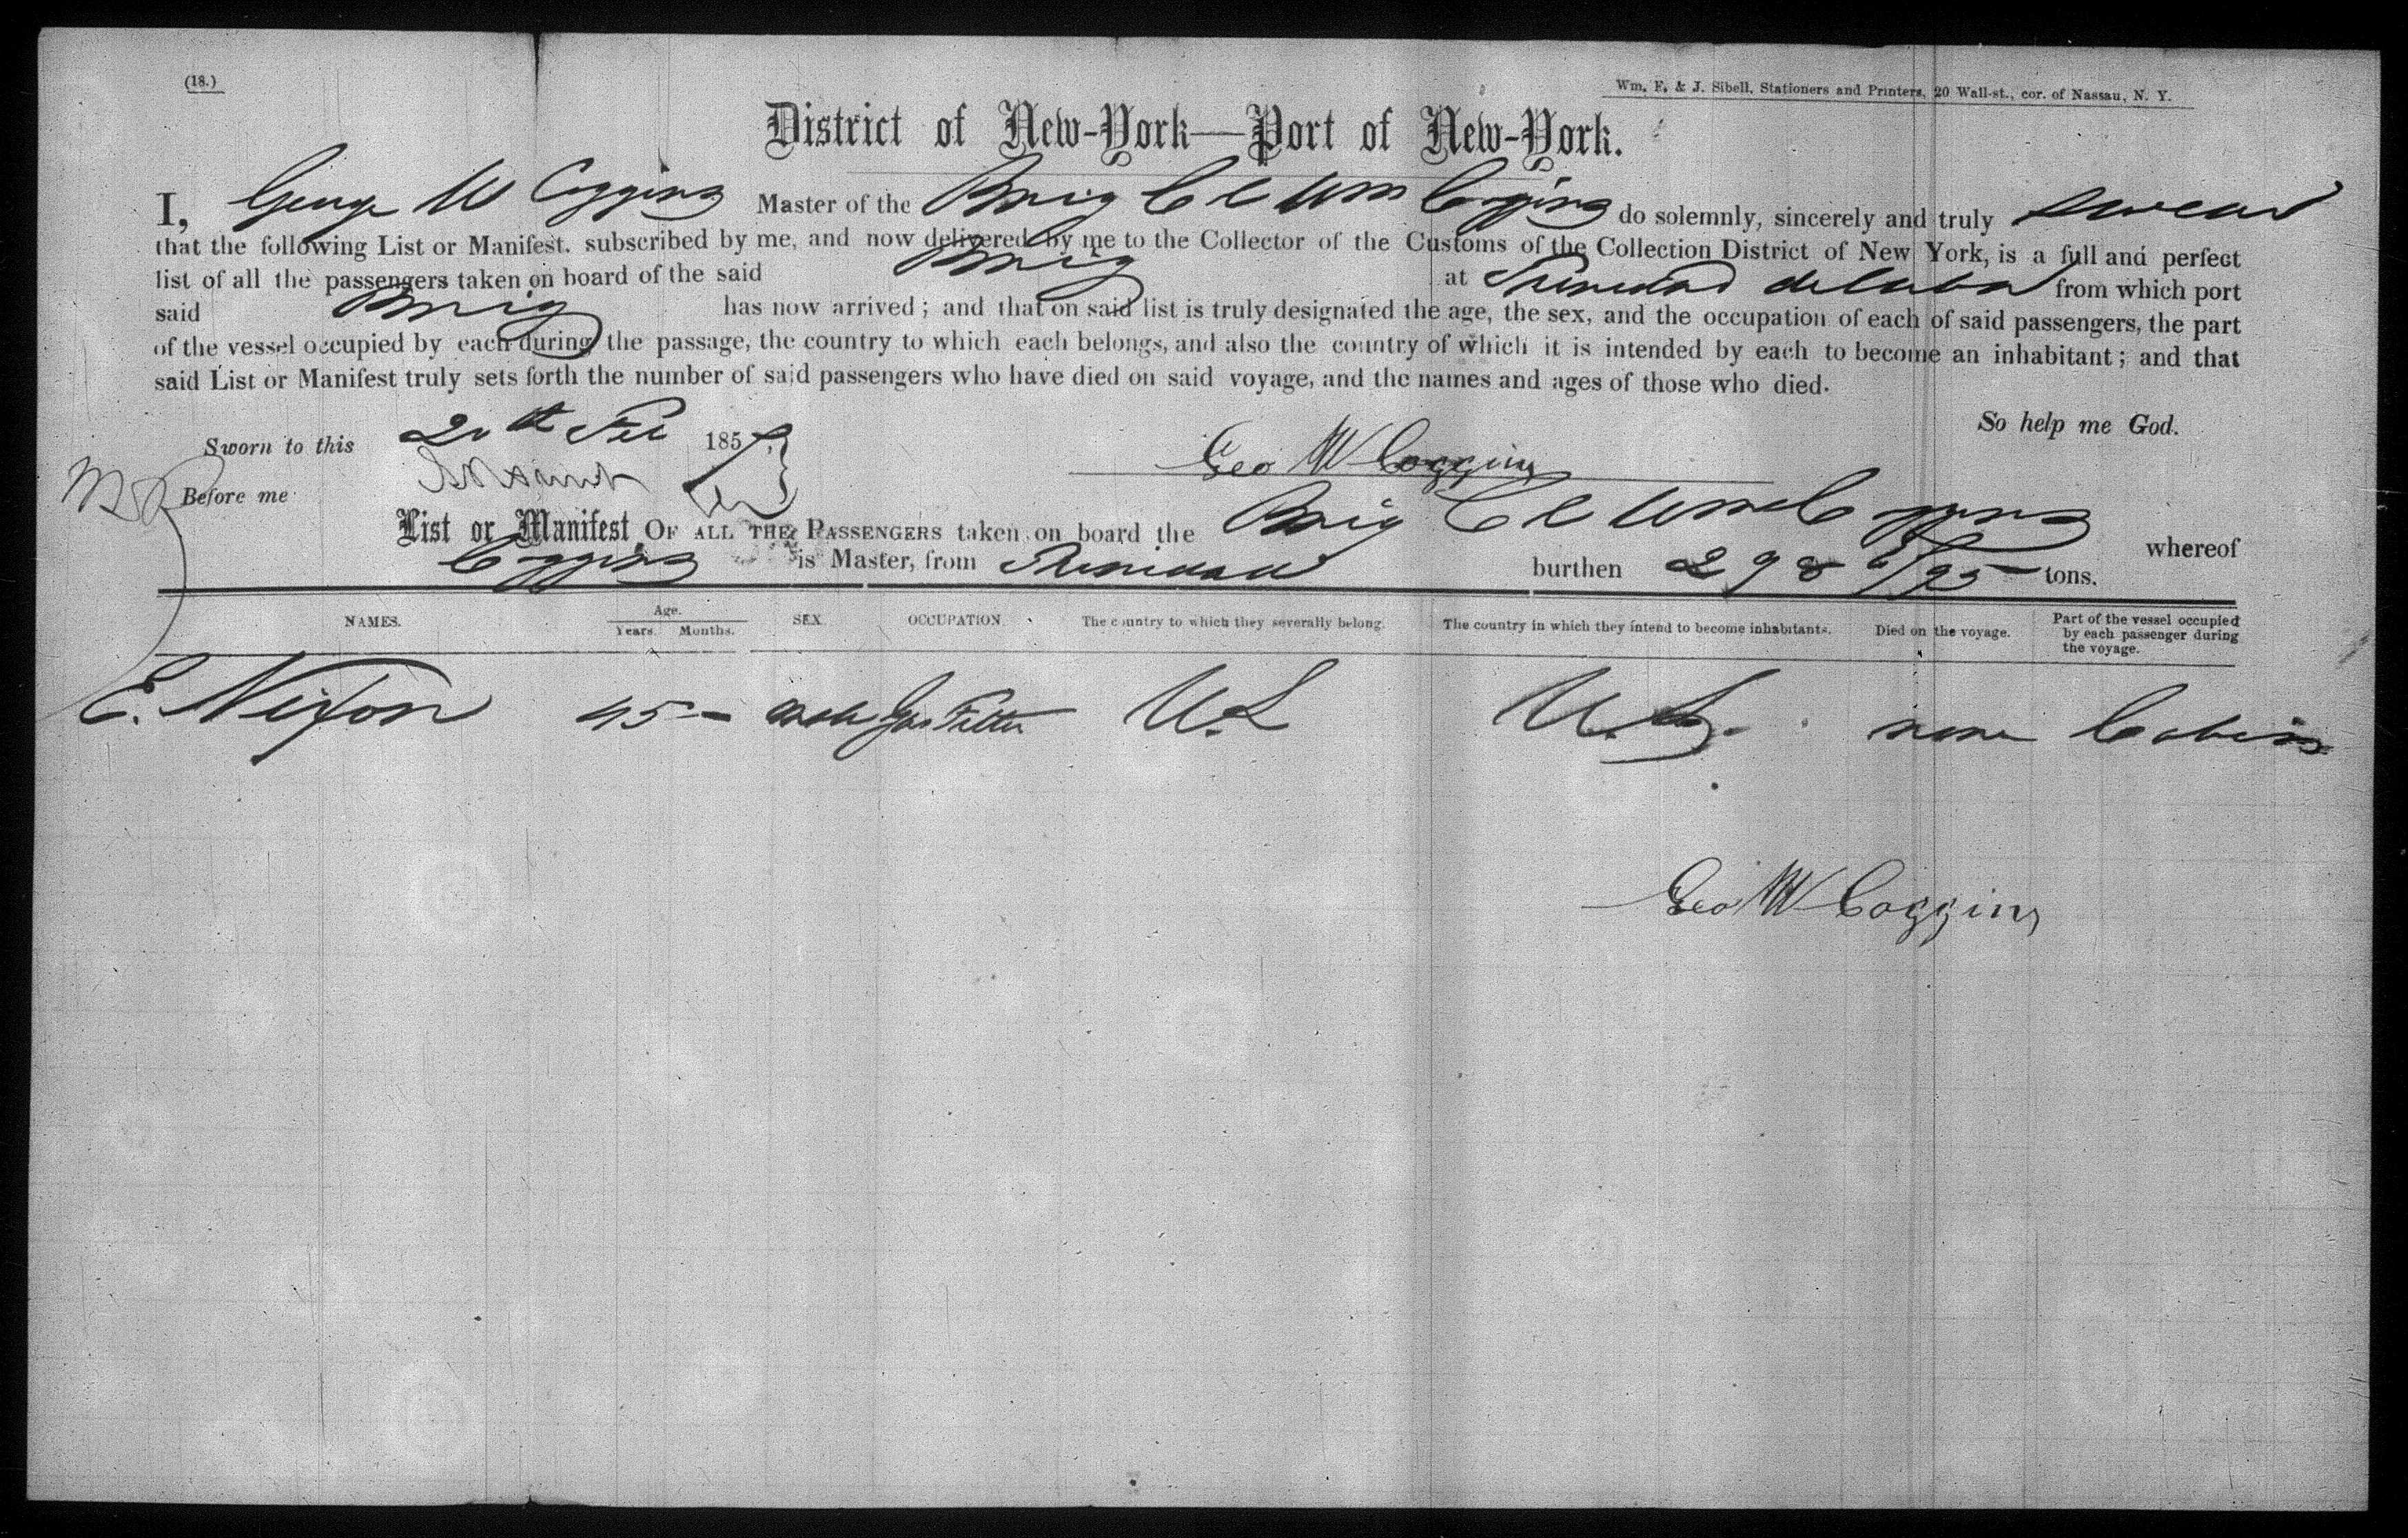 (18.)
Wm. F. & J. Sibell, Stationers and Printers, 20 Wall-st., cor. of Nassau, N. Y.
District of New-York—Port of New-York.
I, George W Coggins Master of the Brig Coggins do solemnly, sincerely and truly swear
that the following List or Manifest. subscribed by me, and now delivered by me to the Collector of the Customs of the Collection District of New York, is a full and perfect
list of all the passengers taken on board of the said Brig at Trinidad de Cuba from which port
said Brig has now arrived; and that on said list is truly designated the age, the sex, and the occupation of each of said passengers, the part
of the vessel occupied by each during the passage, the country to which each belongs, and also the country of which it is intended by each to become an inhabitant; and that
said List or Manifest truly sets forth the number of said passengers who have died on said voyage, and the names and ages of those who died.
So help me God.
Sworn to this 20th Feb 185
Geo W Coggins
Before me
List or Manifest OF ALL THE PASSENGERS taken on board the Brig Coggins whereof
Coggins is Master, from Trinidad burthen 298 6/95 tons.
NAMES. Age. Years. Months. SEX. OCCUPATION. The country to which they severally belong. The country in which they intend to become inhabitants. Died on the voyage. Part of the vessel occupied by each passenger during the voyage.
E. Nixon 45 - male Gas Fitter U.S U.S. none Cabin
Geo W Coggins